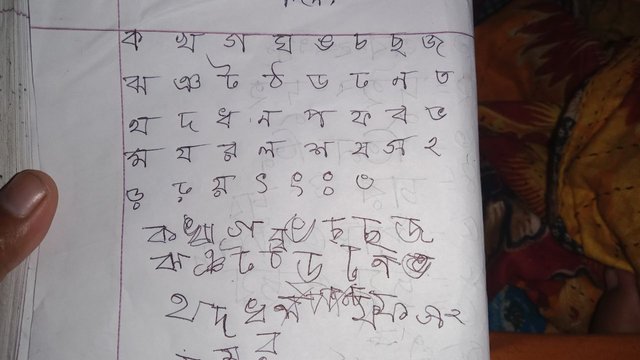 ক খ গ ঘ ঙ চ ছ জ
ঝ ঞ ট ঠ ড ঢ ন ত
থ দ ধ ন প ফ ব ভ
ম য র ল শ ষ স হ
ড় ঢ় য় ৎ ং ঃ ঁ
ক খ গ ঘ ঙ চ ছ জ
ঝ ঞ ট ঠ ড ঢ ন
থ দ ধ